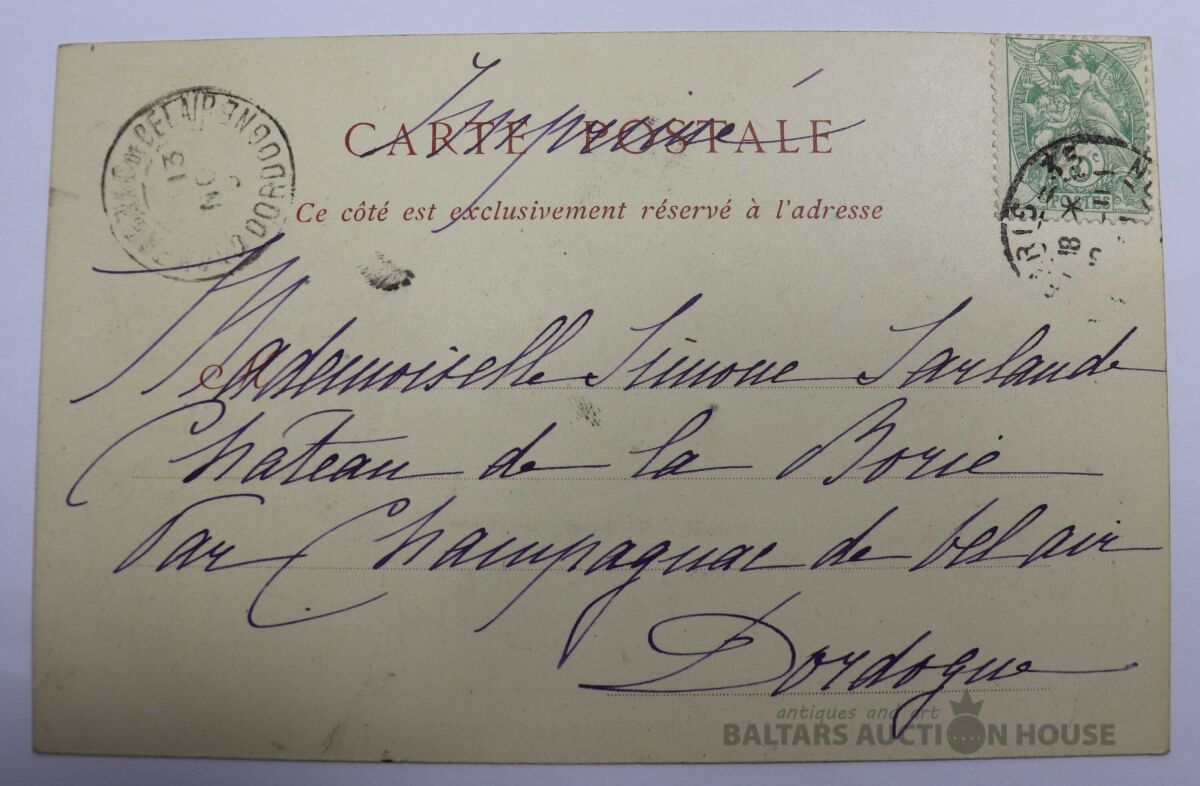 Imprimé
CARTE POSTALE
Ce côté est exclusivement réservé à l'adresse
DORDOGNE
13
PARIS
18
5c
POSTES
Mademoiselle Simone Sarlande
Château de la Borie
Par Champagnac de bel air
Dordogne
antiques and art
BALTARS AUCTION HOUSE